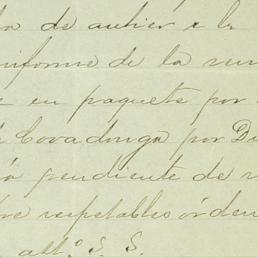 de autier a la
uniforme de la
en paquete por
Covadonga por
pendiente de
respetables órden
att.º S. S.